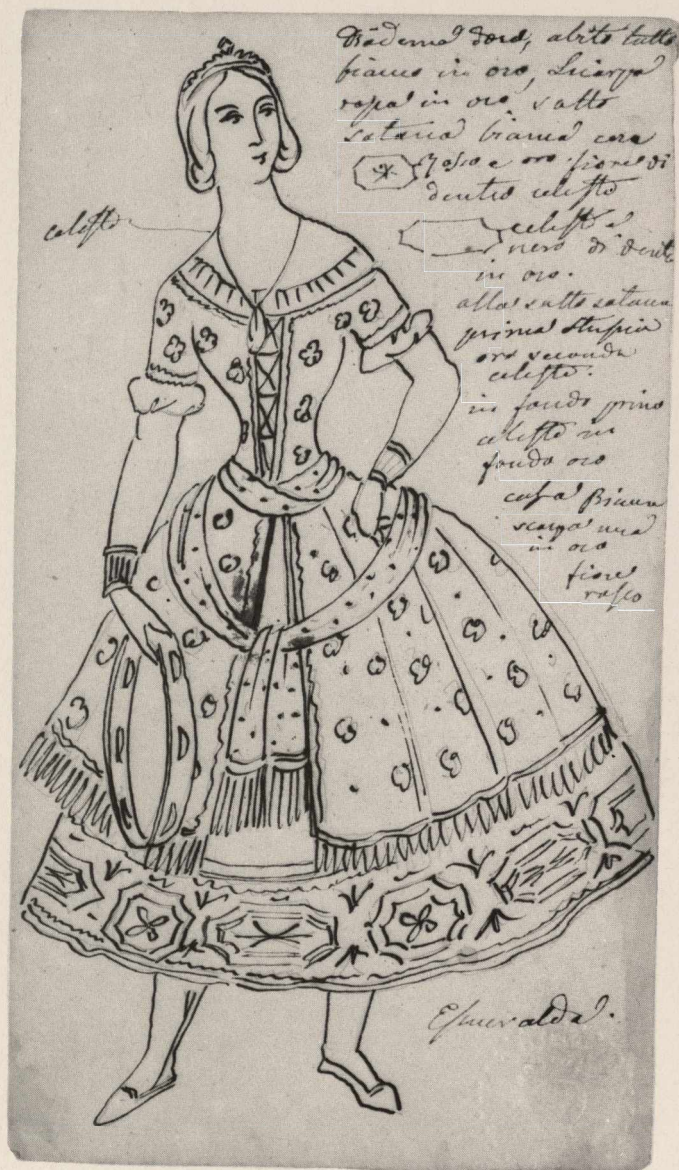 Diadema d'oro, abito tutto
bianco in oro, Sciarpa
rosa in oro, sotto
sotana bianca con
roso e oro fiore di
dentro celeste
celeste
celeste e
nero di dentro
in oro.
alla sotto sotana
prima
oro seconda
celeste.
in fondo primo
celeste in
fondo oro
Bianca
in oro
fiore
Esmeralda.